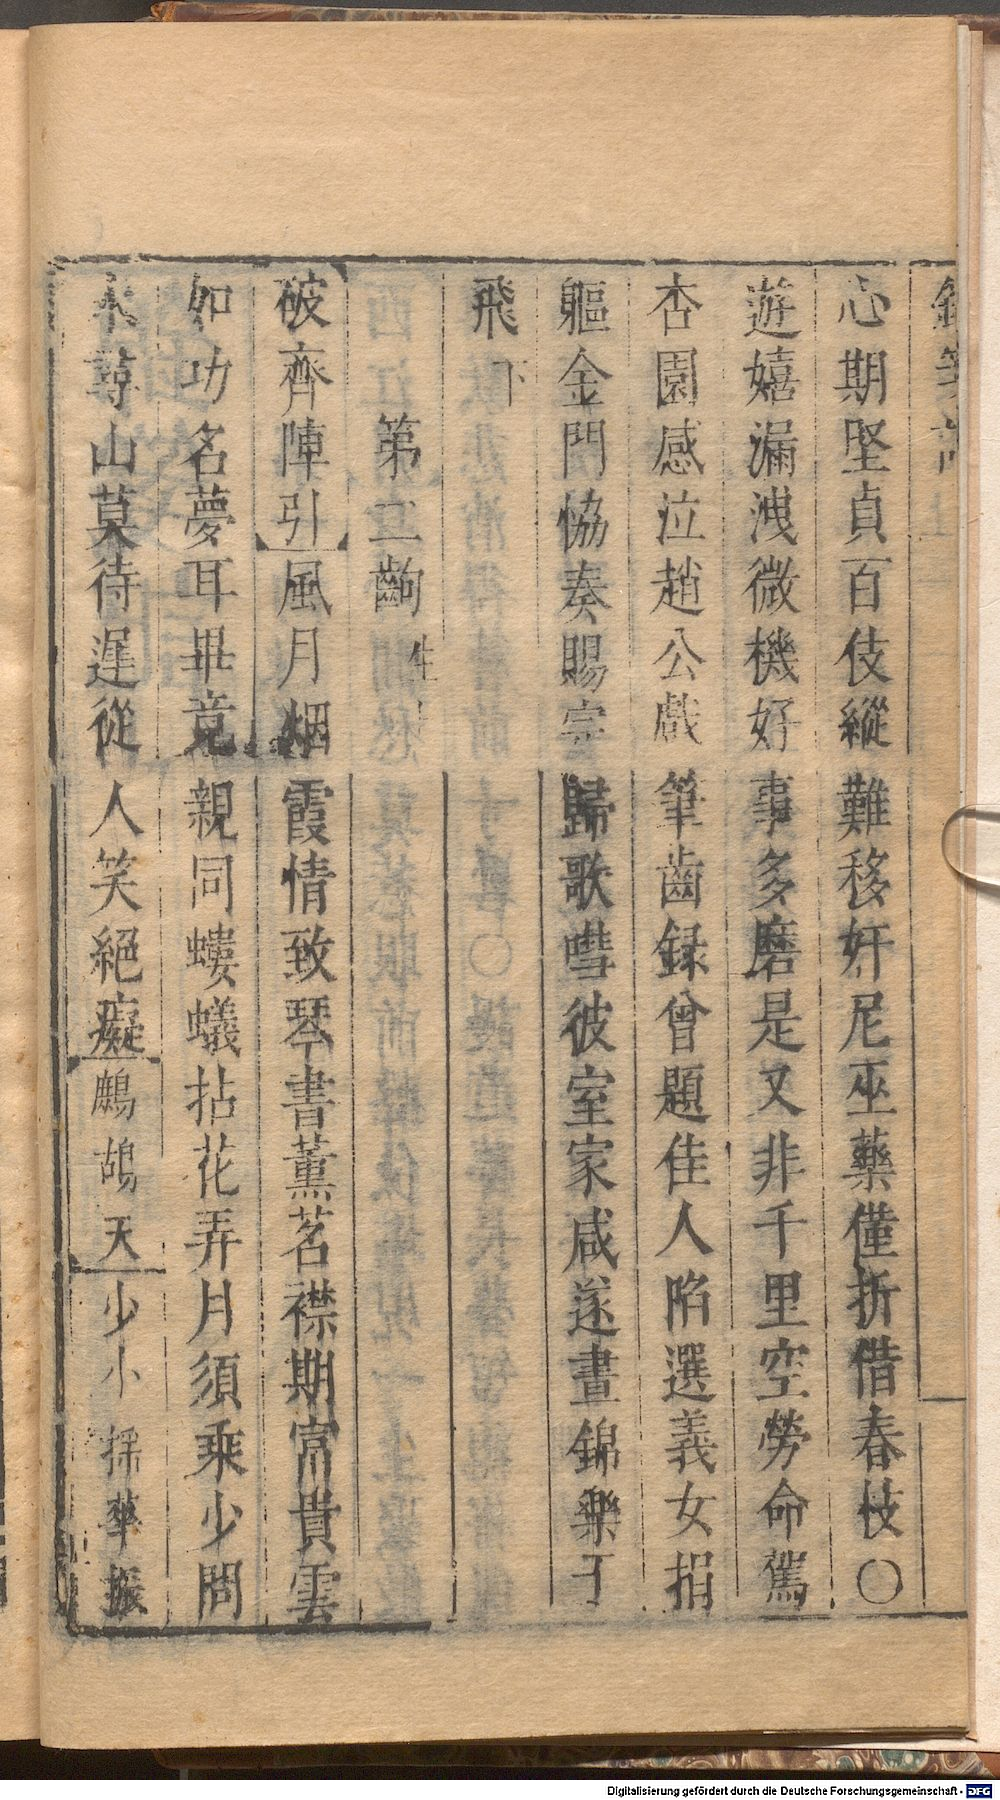 心期堅貞百伎縱難移奸尼巫藥僅折借春枝〇
遊嬉漏洩微機好事多磨是又非千里空勞命駕
杏園感泣趙公戲筆齒録曾題佳人陷選義女捐
軀金門恊奏賜完歸歌嘒彼室家咸遂晝錦樂于
飛下
第二齣生上
破齊陣引風月烟霞情致琴書薰茗襟期富貴雲
如功名夢耳畢竟親同螻蟻拈花弄月須乘少問
水尋山莫待遲從人笑絕癡鷓鴣天少小採華振
Digitalisierung gefördert durch die Deutsche Forschungsgemeinschaft - DFG